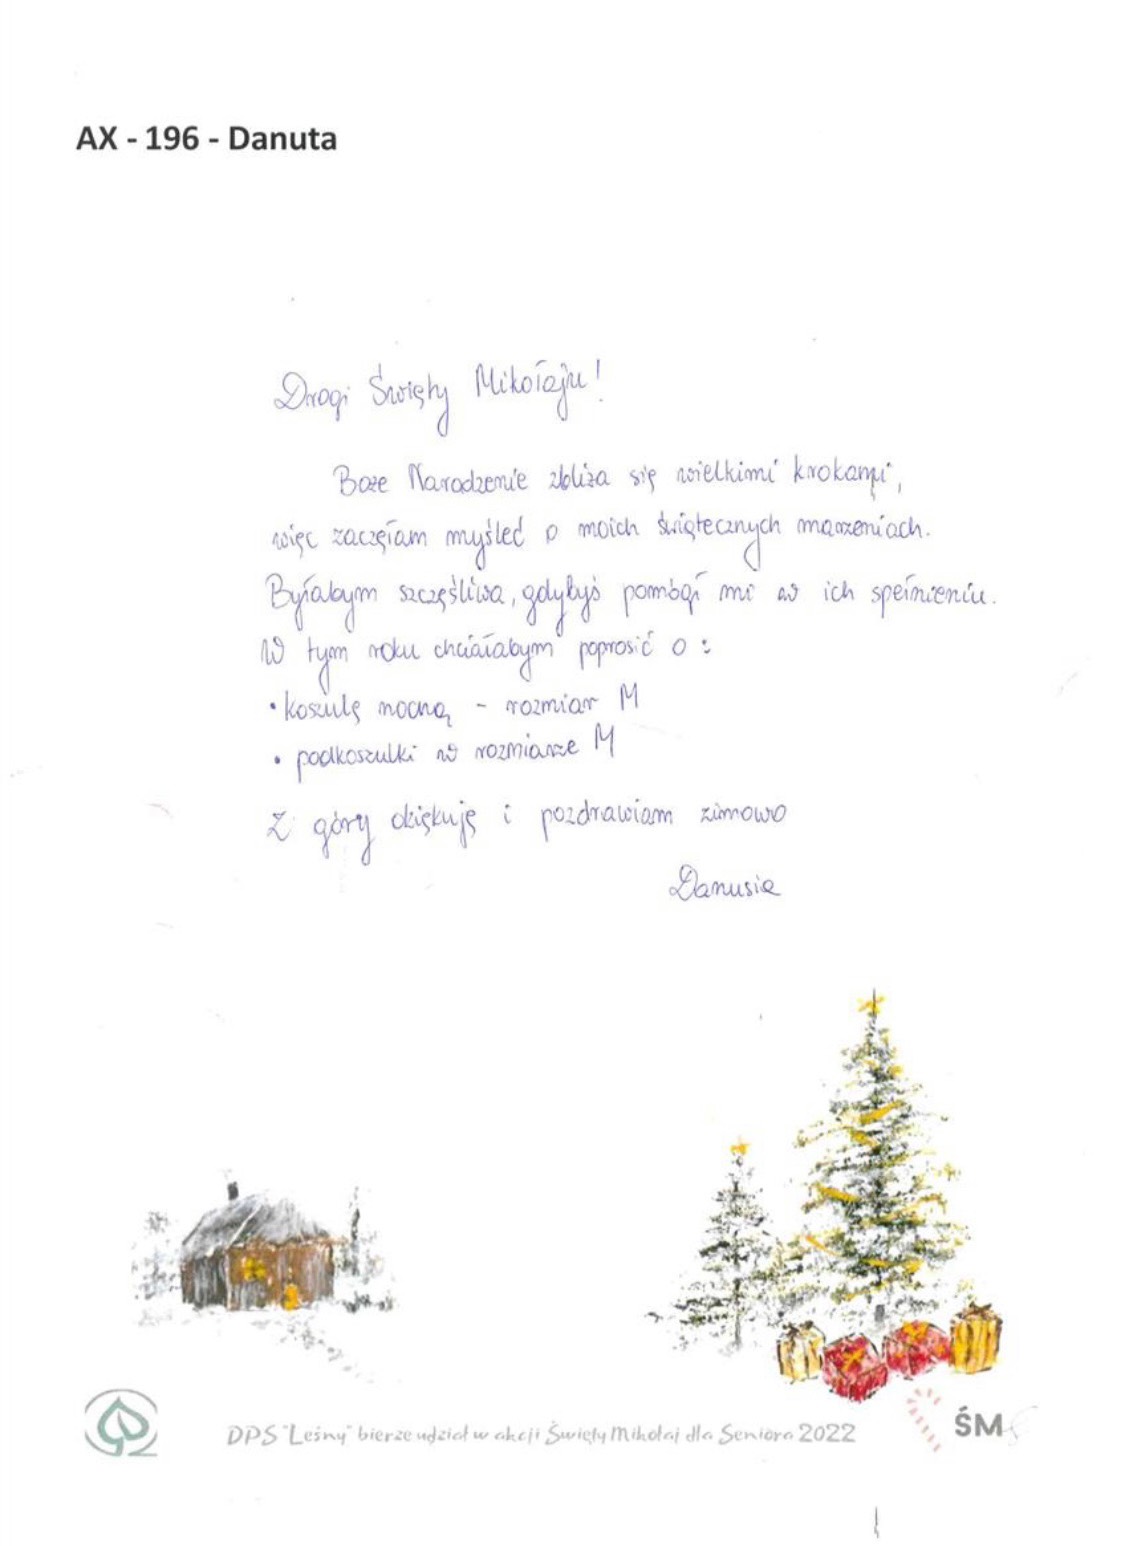 AX - 196 - Danuta
Drogi Święty Mikołaju!
Boże Narodzenie zbliża się wielkimi krokami,
więc zaczęłam myśleć o moich świątecznych marzeniach.
Byłabym szczęśliwa, gdybyś pomógł mi w ich spełnieniu.
W tym roku chciałabym poprosić o:
• koszulę nocną - rozmiar M
• podkoszulki w rozmiarze M
Z góry dziękuję i pozdrawiam zimowo
Danusia
DPS "Leśny" bierze udział w akcji Święty Mikołaj dla Seniora 2022
ŚM